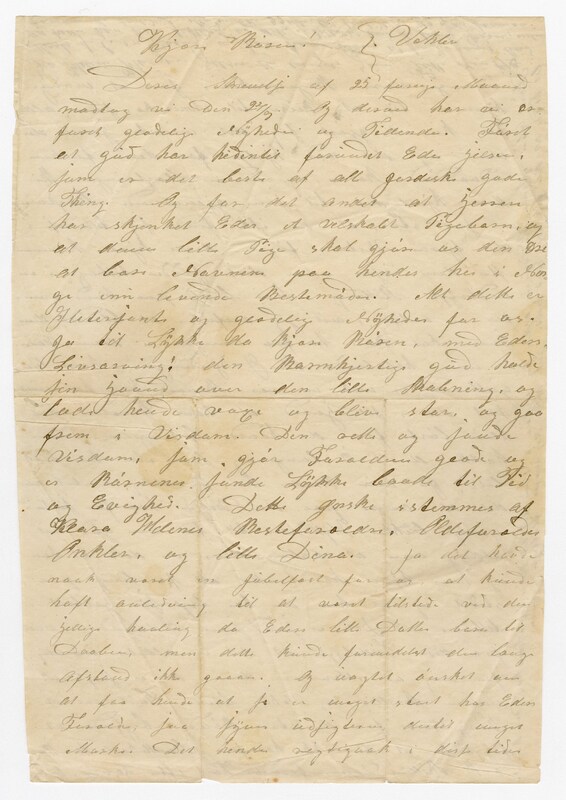 Kjære Rasin! J. Vahler
Deres Skrivelse af 25 forrige Maaned
modtog vi den 27/7 Og derved har vi er-
faret glædelig Nyheder og Tidende. Først
at gud har hidintil forundet Eder Helsen,
som er det beste af all jordiske gode
Thing. Og for det andet at Herren
har skjenket Eder et velskabt Pigebarn, og
at denne lille Pige skal gjøre os den Ære
at bære Navnene paa hendes her i Nor
ge enn levende Bestemødre. Alt dette er
og glædelig Nyheder for os.
ga til Lykke da kjære Rasin, med Eders
Livsarving! den Barmhjertige gud holde
sin Haand over den lille Skabning, og
lade hende voxe og blive stor, og gaa
frem i Visdom. Den rette og sande
Visdom, som gjør Foreldrene glade og
er Børnenes sande Lykke baade til Tid
og Evighed. Dette ønske istemmes af
Klara Helenes Besteforældre, Oldeforældre
Onkler, og lille Dina. ja det havde
nock været en for os at kunde
haft anledning til at været tilstede ved den
hellige handling da Eders lille Datter bares til
Daaben, men dette kunde formedelst den lange
afstand ikke gaaes. Og meget ønsket om
at faa hende at se er meget stort hos Eders
Foreldre, saa
Det hender i disse tider